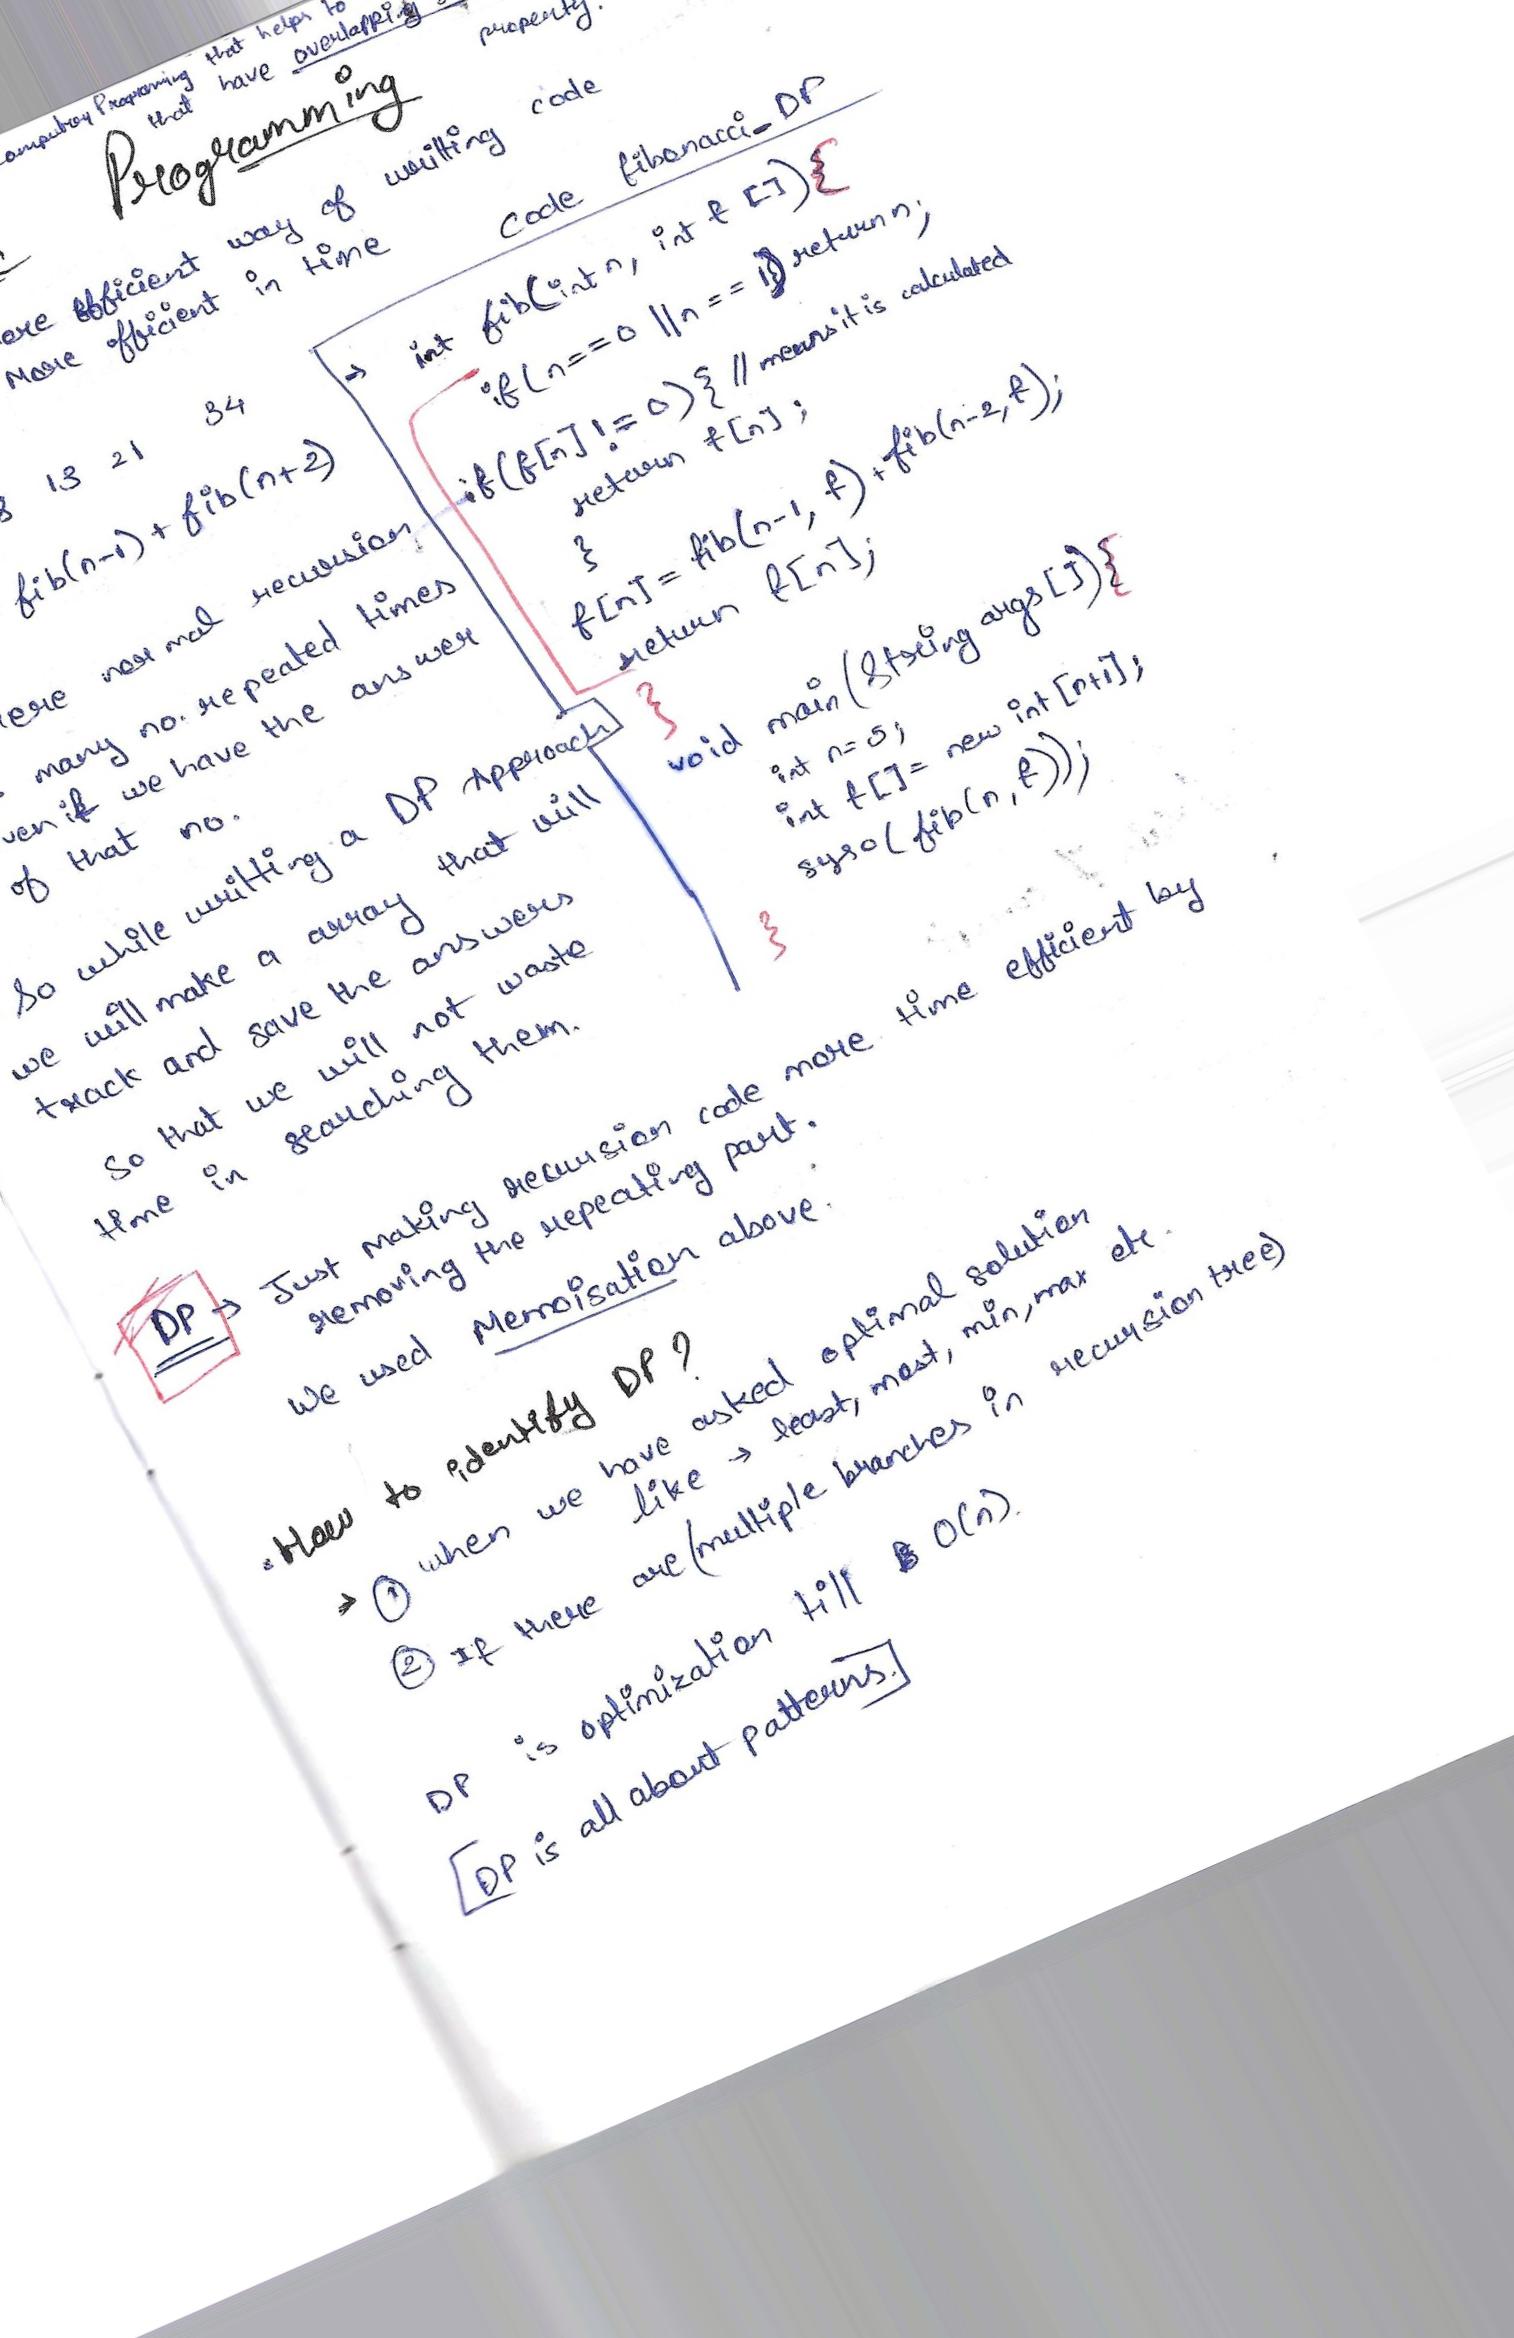 Programming that helps to
that have overlapping
property.
Programming
efficient way of writting code
More efficient in time
13 21 34
fib(n-1) + fib(n+2)
normal recursion
many no. repeated times
if we have the answer
of that no.
So while writting a DP Approach
we will make a array that will
track and save the answers
So that we will not waste
time in searching them.
Code fibonacci_DP
→ int fib(int n, int f []){
if(n==0 || n==1) return n;
if(f[n] != 0){ // means it is calculated
return f[n];
}
f[n] = fib(n-1, f) + fib(n-2, f);
return f[n];
}
void main(String args[]){
int n=5;
int f[] = new int[n+1];
syso(fib(n, f));
}
DP → Just making recursion code more time efficient by
removing the repeating part.
We used Memoisation above.
. How to identify DP?
→ ① when we have asked optimal solution
like → least, most, min, max etc.
② If there are (multiple branches in recursion tree)
DP is optimization till O(n).
[DP is all about patterns.]